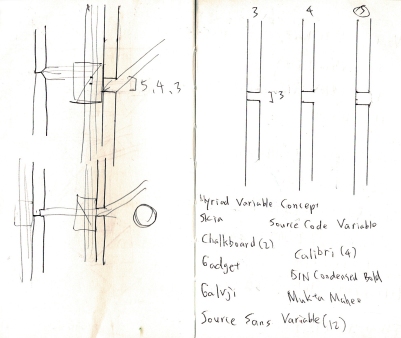 5, 4, 3
3 4 5
3
Myriad Variable Concept
Skia
Source Code Variable
Chalkboard (2)
Calibri (4)
Gadget
DIN Condensed Bold
Galvji
Mukta Mahee
Source Sans Variable (12)